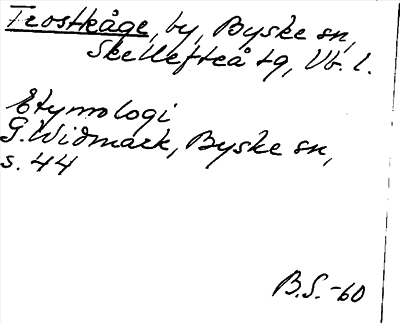 Trostkåge, by, Byske sn,
Skellefteå tg, Vb. l.
Etymologi
G. Widmark, Byske sn,
s. 44
B.S.-60